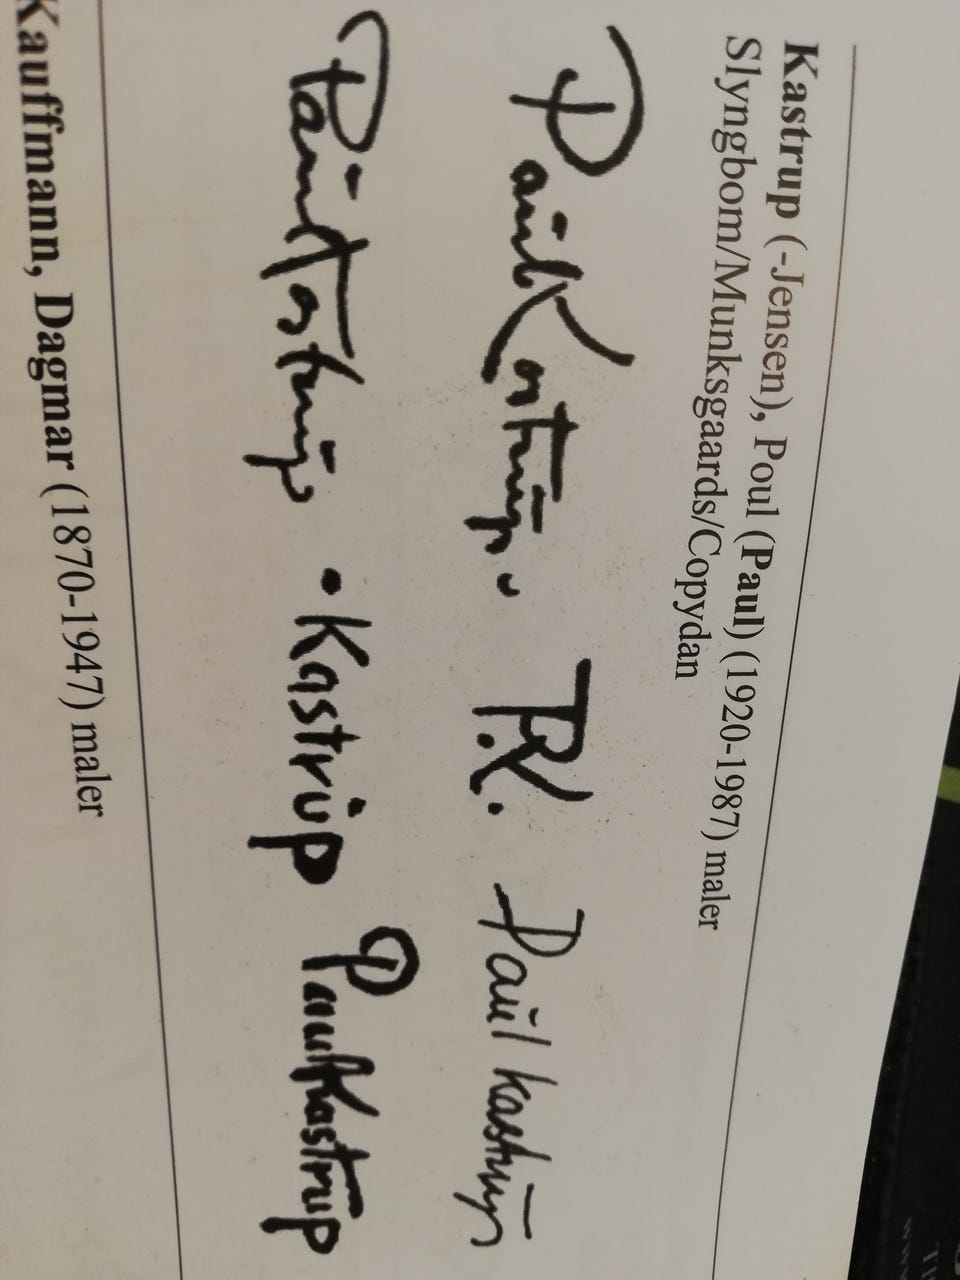 Kastrup (-Jensen), Poul (Paul) (1920-1987) maler
Slyngbom/Munksgaards/Copydan
Paul Kastrup. P.K. Paul Kastrup
Paul Kastrup. Kastrup Paul Kastrup
Kauffmann, Dagmar (1870-1947) maler